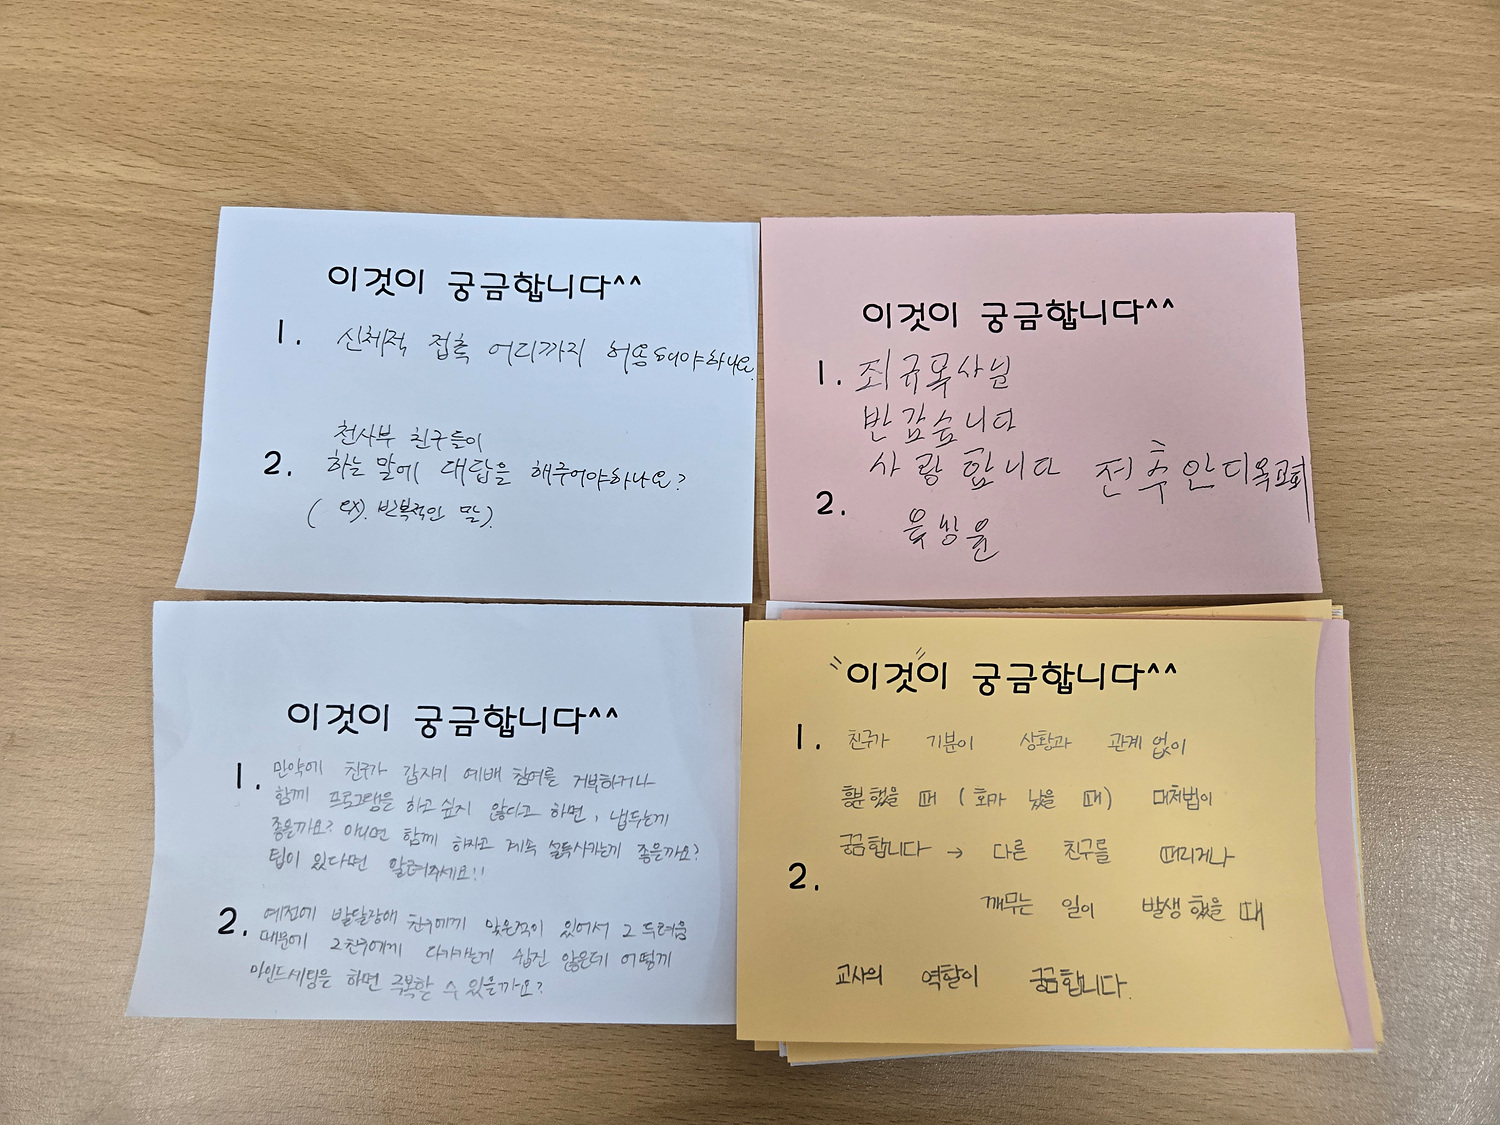 이것이 궁금합니다^^
1. 신체적 접촉 어디까지 허용돼야하나요.
천사부 친구들이
2. 하는 말에 대답을 해주어야하나요?
( ex). 반복적인 말).
이것이 궁금합니다^^
1. 죄규목사님
반갑습니다
사랑합니다 전주안디옥교회
2.
이것이 궁금합니다^^
1. 만약에 친구가 갑자기 예배 참여를 거부하거나
함께 프로그램을 하고 싶지 않다고 하면, 냅두는게
좋을까요? 아니면 함께 하자고 계속 설득시키는게 좋을까요?
팁이 있다면 알려주세요!!
2. 예전에 발달장애 친구에게 맞은적이 있어서 그 두려움
때문에 그 친구에게 다가가는게 쉽진 않은데 어떻게
마인드세팅을 하면 극복할 수 있을까요?
"이것"이 궁금합니다^^
1. 친구가 기분이 상황과 관계 없이
흥분했을 때 (화가 났을 때) 대처법이
궁금합니다 → 다른 친구를 때리거나
2.
깨무는 일이 발생했을 때
교사의 역할이 궁금합니다.